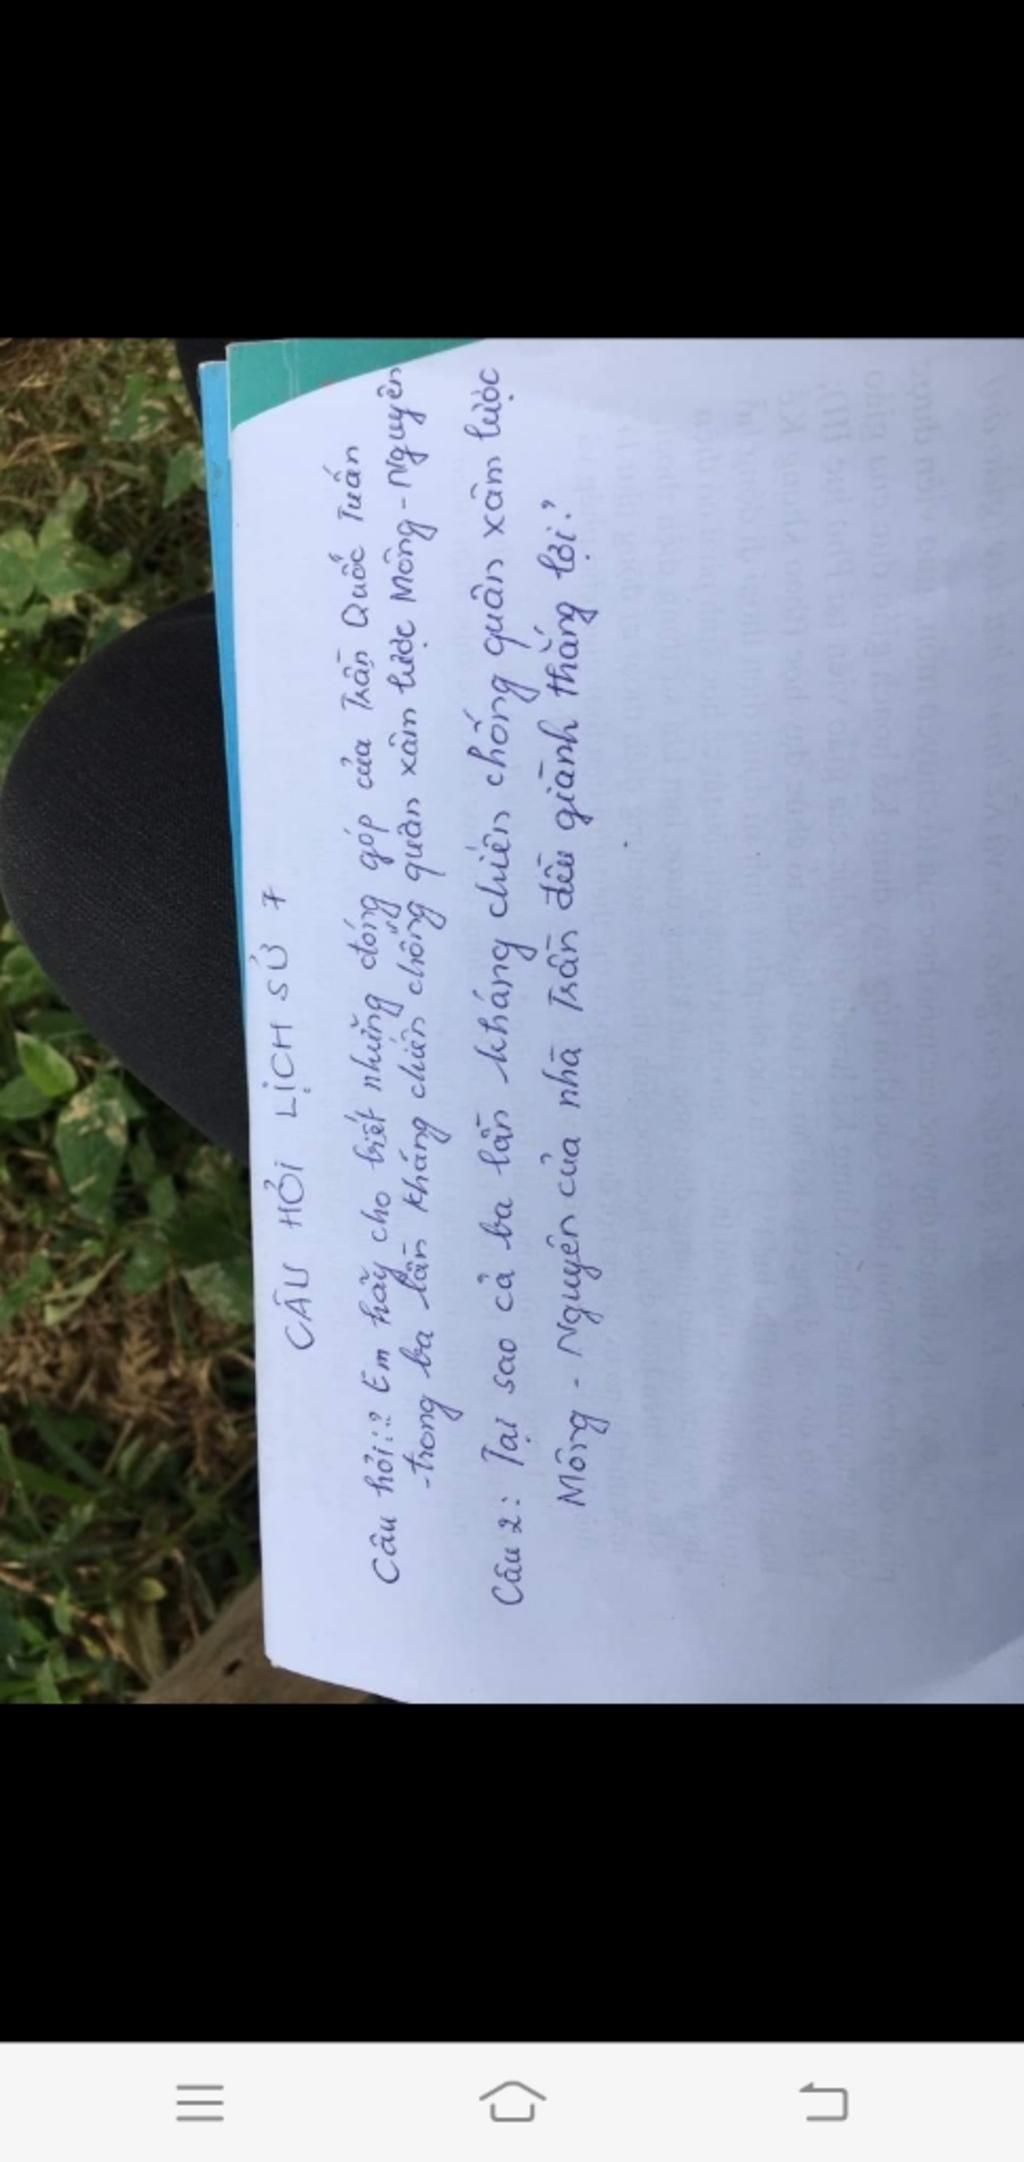 CÂU HỎI LỊCH SỬ 7
Câu hỏi:? Em hãy cho biết những đóng góp của Trần Quốc Tuấn
-trong ba lần kháng chiến chống quân xâm lược Mông - Nguyên
Câu 2: Tại sao cả ba lần kháng chiến chống quân xâm lược
Mông - Nguyên của nhà Trần đều giành thắng lợi?